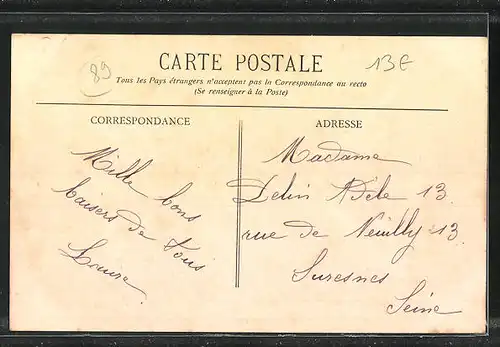 89
CARTE POSTALE
13E
Tous les Pays étrangers n'acceptent pas la Correspondance au recto
(Se renseigner à la Poste)
CORRESPONDANCE
Mille bons
baisers de tous
Louise
ADRESSE
Madame
Adèle 13
rue de Neuilly 13
Suresnes
Seine